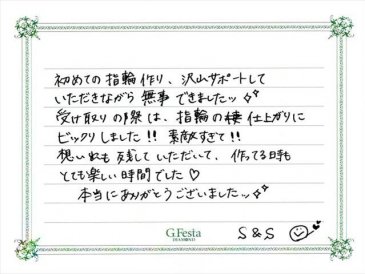 初めての指輪作り、沢山サポートして
いただきながら無事できましたッ✧✧
受け取りの際は、指輪の仕上がりに
ビックリしました!! 素敵すぎて!!
想いれも残していただいて、作ってる時も
とても楽しい時間でした♡
本当にありがとうございましたッ✧✧
G.Festa
DIAMOND
S & S